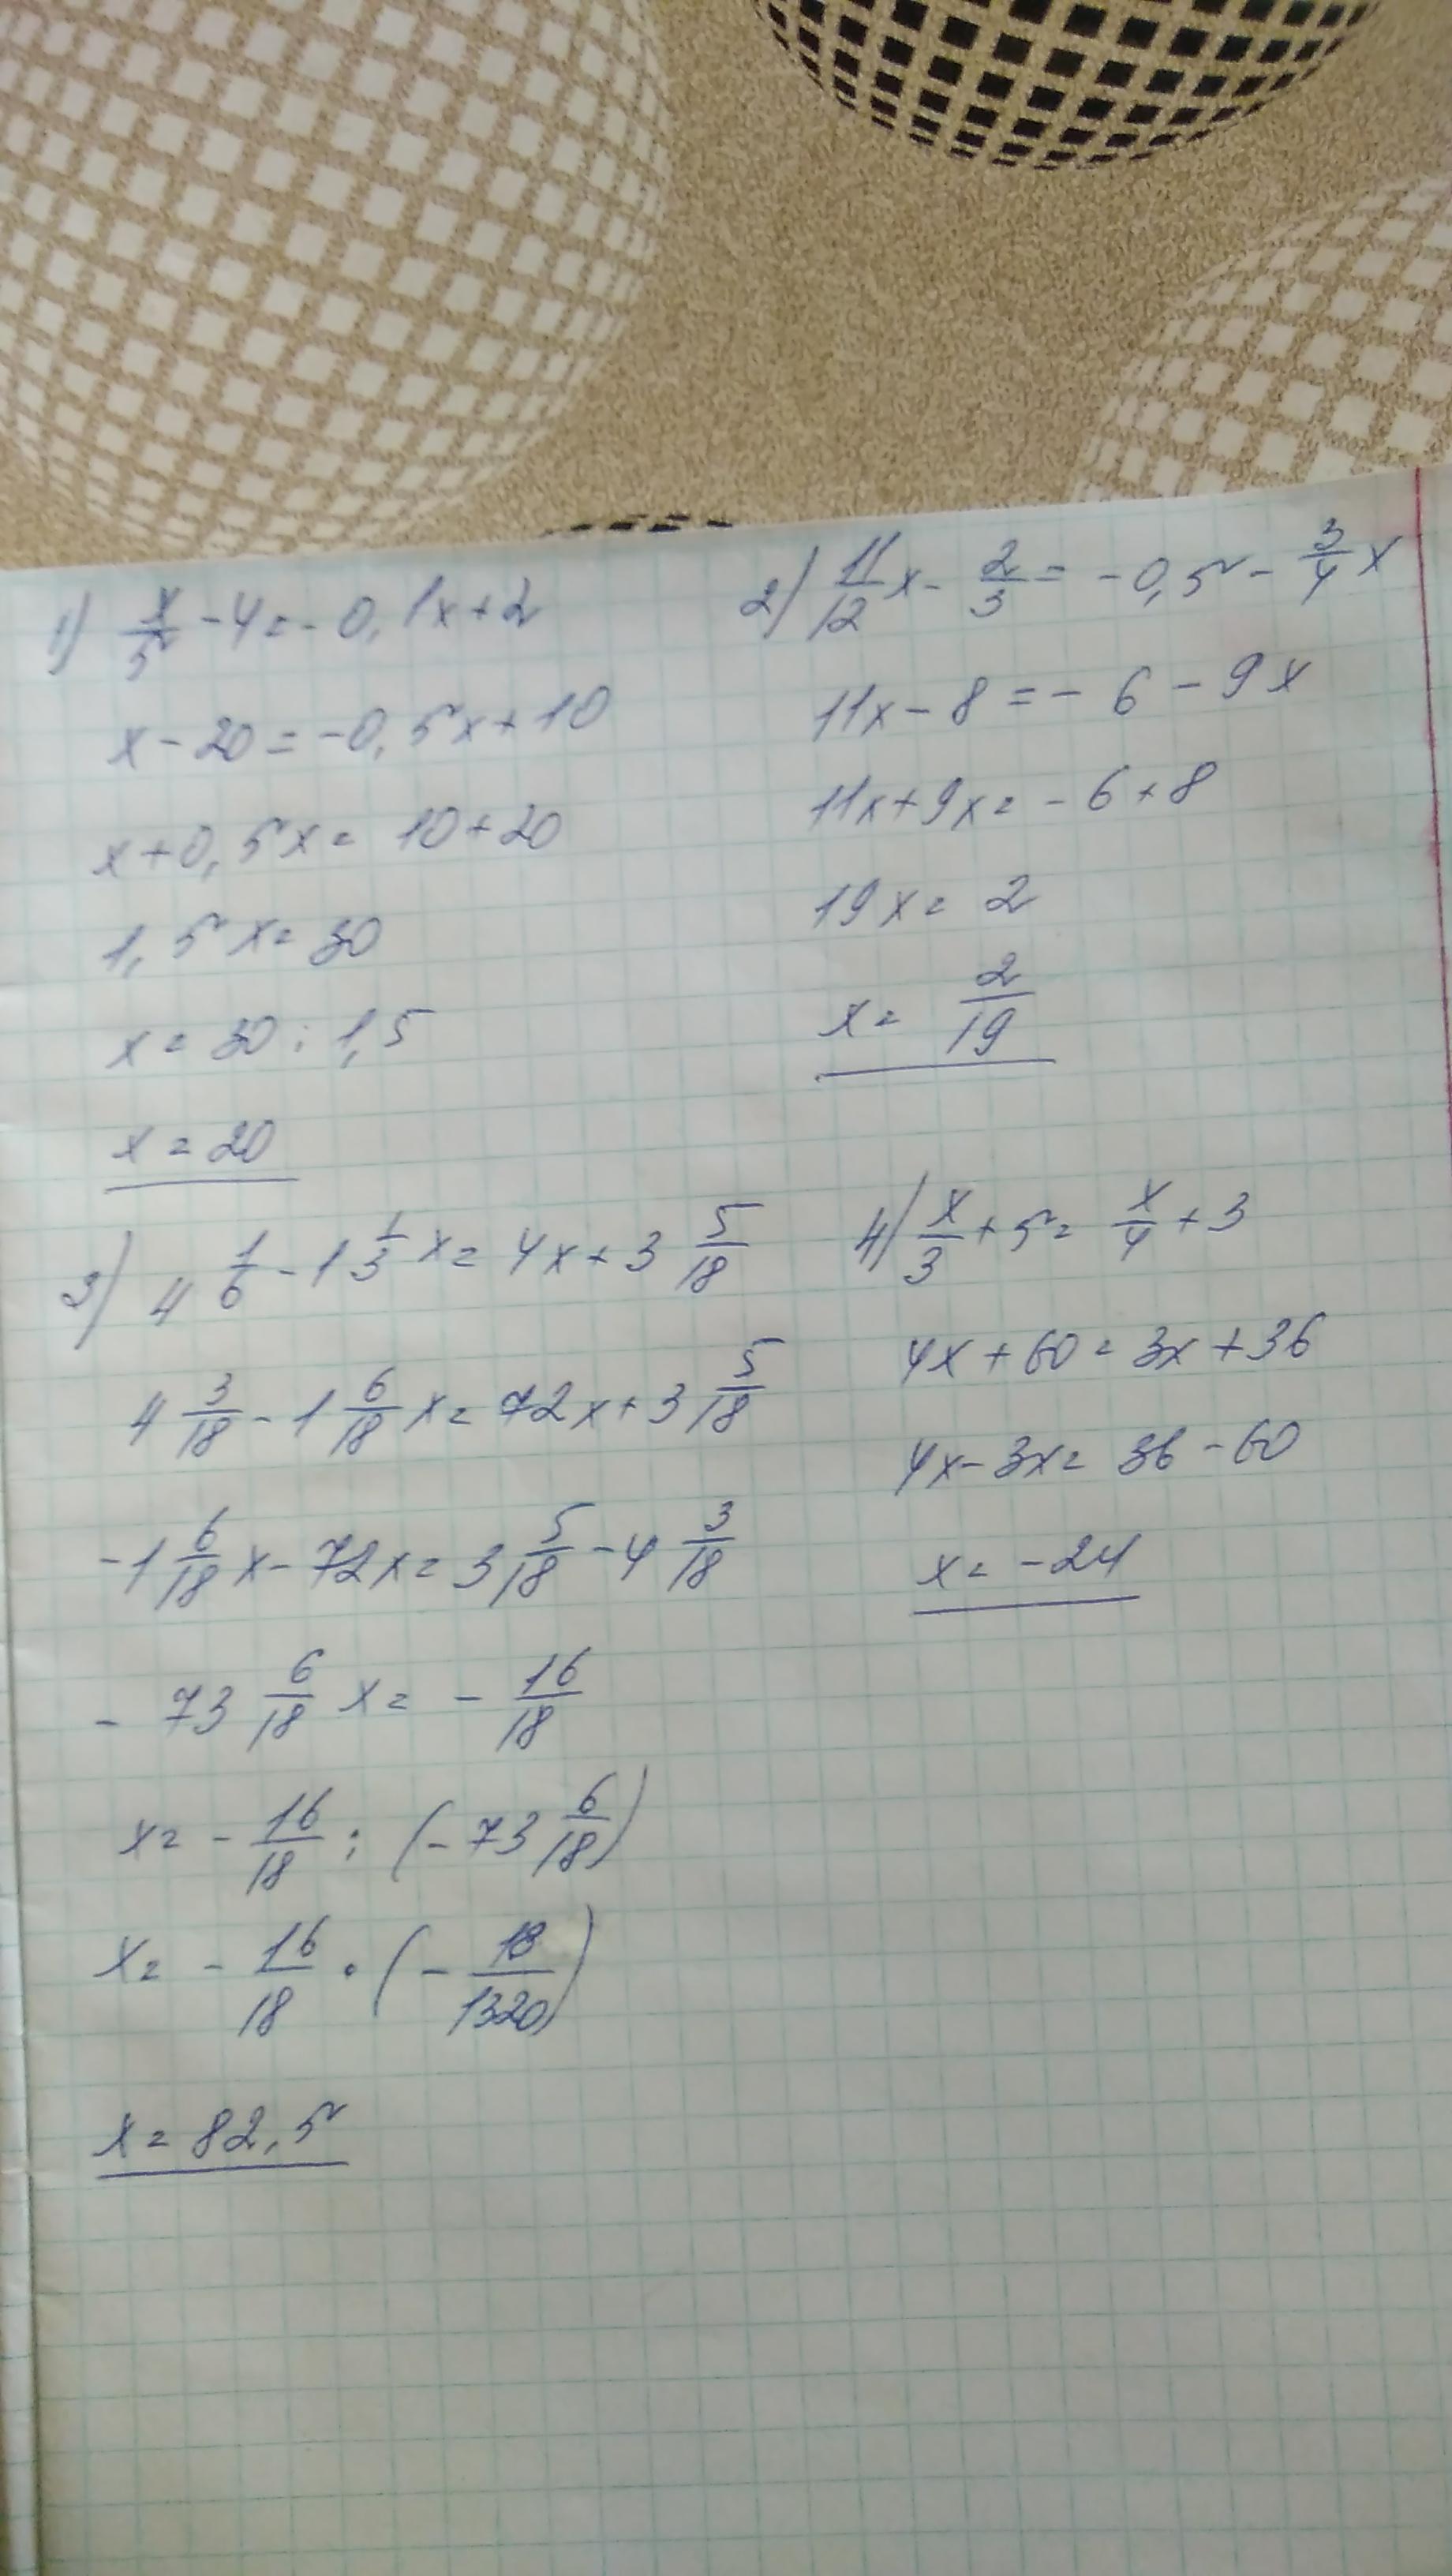 1) x/5 - 4 = - 0,1x + 2
x - 20 = -0,5x + 10
x + 0,5x = 10 + 20
1,5x = 30
x = 30 : 1,5
x = 20
2) 11/12 x - 2/3 = - 0,5 - 3/4 x
11x - 8 = - 6 - 9x
11x + 9x = - 6 + 8
19x = 2
x = 2/19
3) 4 1/6 - 1 1/3 x = 4x + 3 5/18
4 3/18 - 1 6/18 x = 72x + 3 5/18
-1 6/18 x - 72x = 3 5/18 - 4 3/18
- 73 6/18 x = - 16/18
x = - 16/18 : (- 73 6/18)
x = - 16/18 · (- 18/1320)
x = 82,5
4) x/3 + 5 = x/4 + 3
4x + 60 = 3x + 36
4x - 3x = 36 - 60
x = -24